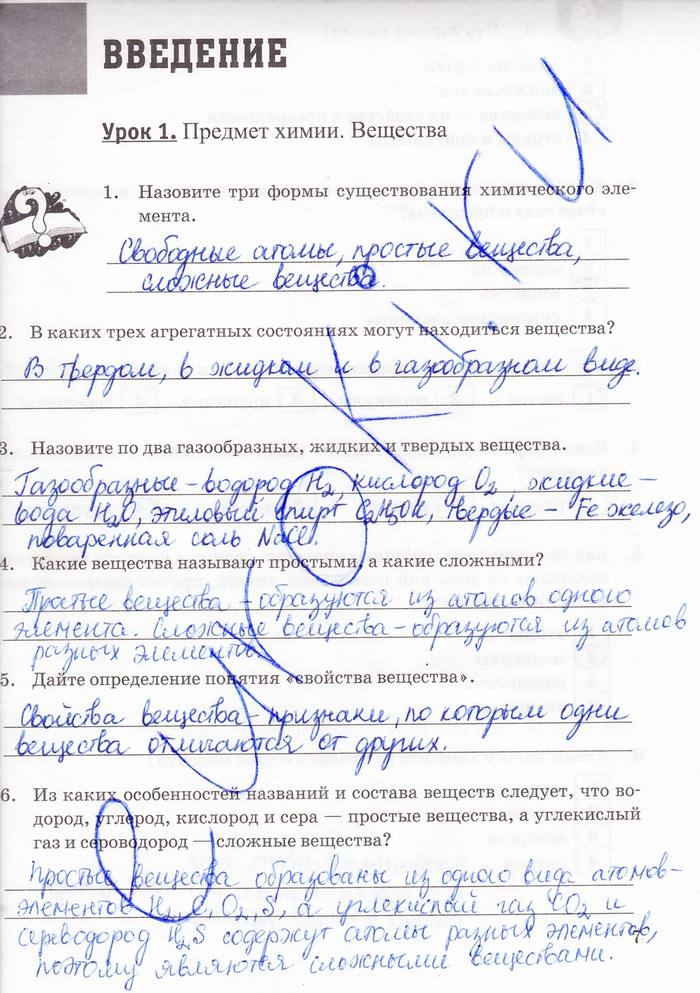 ВВЕДЕНИЕ
Урок 1. Предмет химии. Вещества
1. Назовите три формы существования химического эле-
мента.
Свободные атомы, простые вещества,
сложные вещества.
2. В каких трех агрегатных состояниях могут находиться вещества?
В твердом, в жидком и в газообразном виде.
3. Назовите по два газообразных, жидких и твердых вещества.
Газообразные – водород H₂, кислород O₂, жидкие –
вода H₂O, этиловый спирт C₂H₅OH, твердые – Fe железо,
поваренная соль NaCl.
4. Какие вещества называют простыми, а какие сложными?
Простые вещества – образуются из атомов одного
элемента. Сложные вещества – образуются из атомов
разных элементов.
5. Дайте определение понятия «свойства вещества».
Свойства вещества – признаки, по которым одни
вещества отличаются от других.
6. Из каких особенностей названий и состава веществ следует, что во-
дород, углерод, кислород и сера — простые вещества, а углекислый
газ и сероводород — сложные вещества?
Простые вещества образованы из одного вида атомов-
элементов H₂, C, O₂, S, а углекислый газ CO₂ и
сероводород H₂S содержут атомы разных элементов,
поэтому являются сложными веществами.